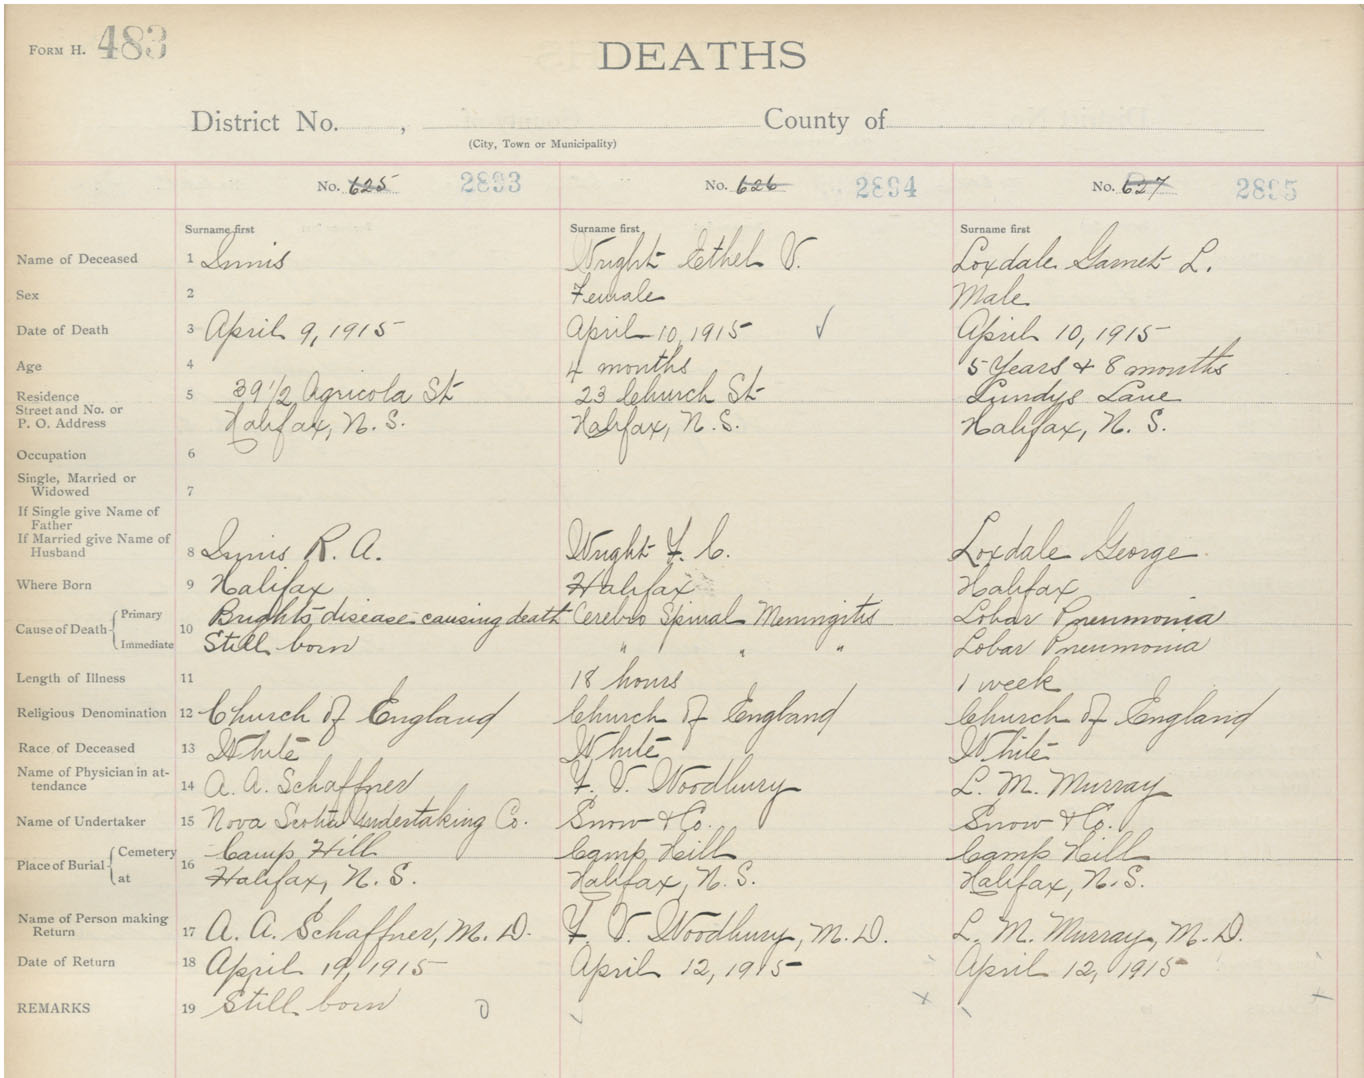 FORM H. 483
DEATHS
District No. , County of
(City, Town or Municipality)
No. 625 2893 No. 626 2894 No. 627 2895
Surname first Surname first Surname first
Name of Deceased 1 Innis Wright Ethel V. Loxdale Garnet L.
Sex 2 Female Male
Date of Death 3 April 9, 1915 April 10, 1915 April 10, 1915
Age 4 4 months 5 Years & 8 months
Residence 5 39 1/2 Agricola St 23 Church St Lundys Lane
Street and No. or
P. O. Address Halifax, N. S. Halifax, N. S. Halifax, N. S.
Occupation 6
Single, Married or
Widowed 7
If Single give Name of
Father
If Married give Name of
Husband 8 Innis R. A. Wright F. C. Loxdale George
Where Born 9 Halifax Halifax Halifax
Cause of Death Primary 10 Brights disease causing death Cerebro Spinal Meningitis Lobar Pneumonia
Immediate Still born " " " Lobar Pneumonia
Length of Illness 11 18 hours 1 week
Religious Denomination 12 Church of England Church of England Church of England
Race of Deceased 13 White White White
Name of Physician in at-
tendance 14 A. A. Schaffner F. V. Woodbury L. M. Murray
Name of Undertaker 15 Nova Scotia Undertaking Co. Snow & Co. Snow & Co.
Place of Burial Cemetery 16 Camp Hill Camp Hill Camp Hill
at Halifax, N. S. Halifax, N. S. Halifax, N. S.
Name of Person making
Return 17 A. A. Schaffner, M. D. F. V. Woodbury, M. D. L. M. Murray, M. D.
Date of Return 18 April 19, 1915 April 12, 1915 April 12, 1915
REMARKS 19 Still born